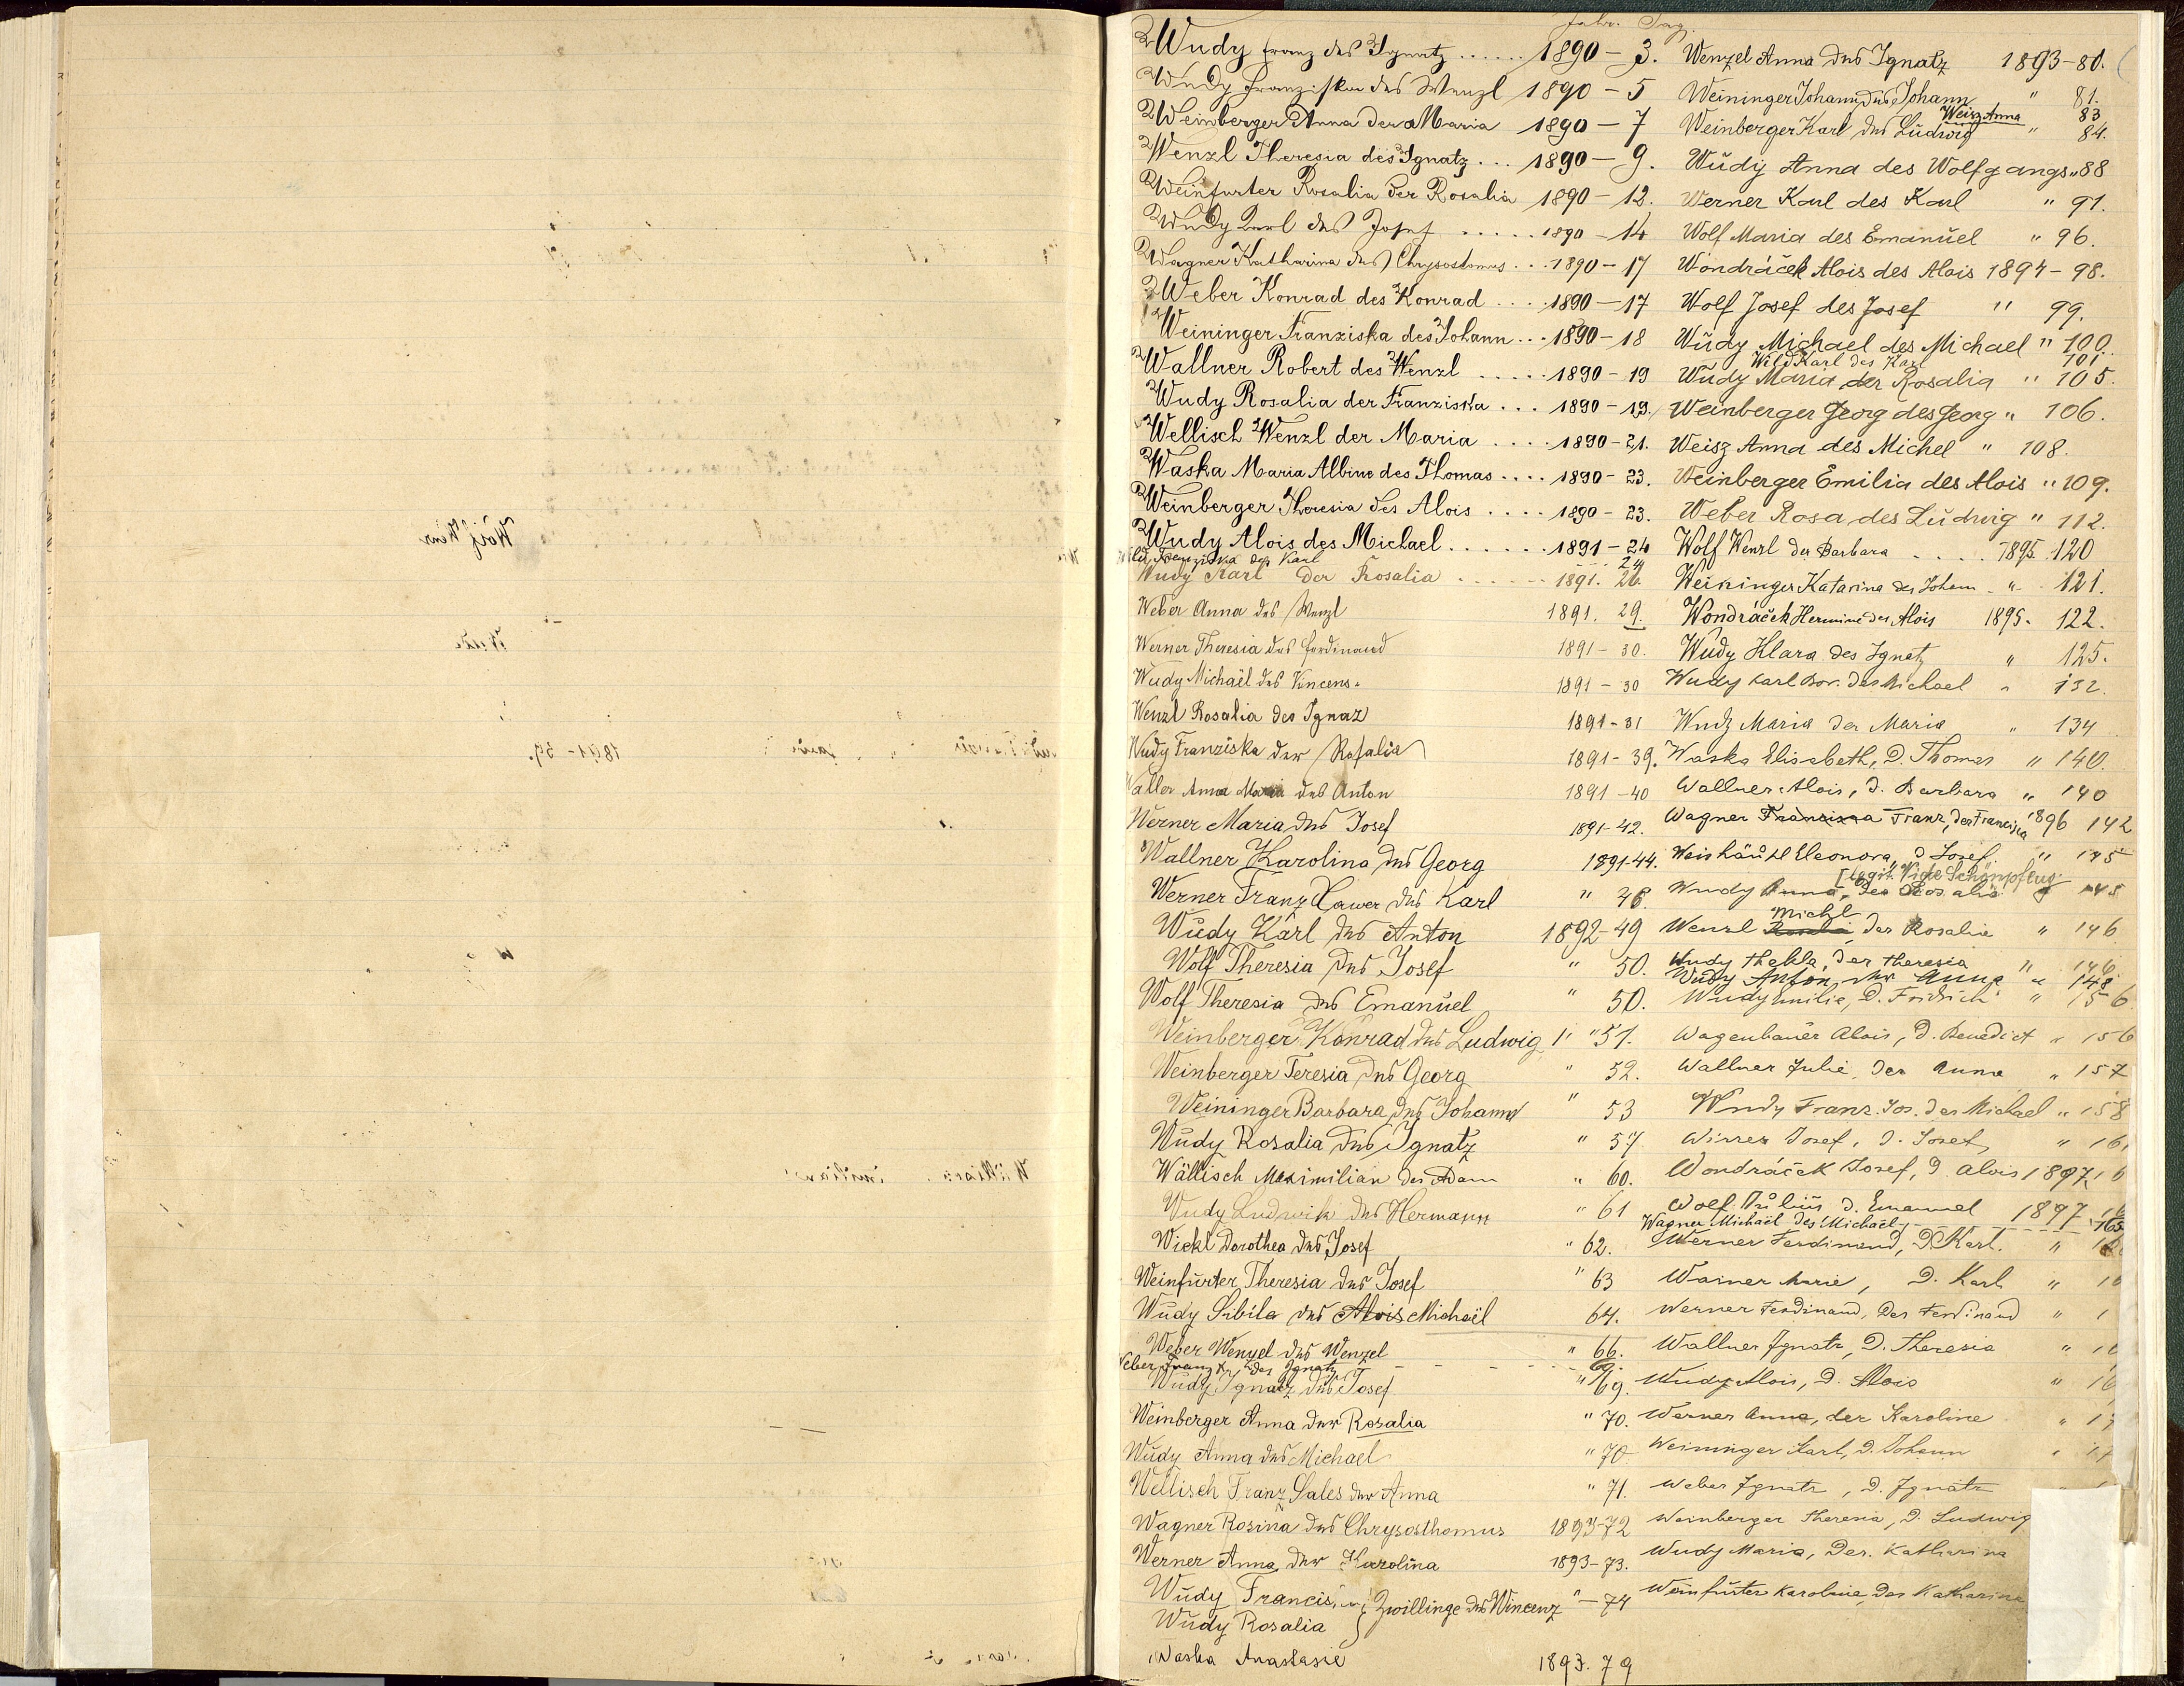 Jahr. Pag.
Wudy Franz des Ignatz ...... 1890 - 3.
Wudy Franziska des Wenzl 1890 - 5
Weinberger Anna der Maria 1890 - 7
Wenzl Theresia des Ignatz ... 1890 - 9.
Weinfurter Rosalia der Rosalia 1890 - 12.
Wudy Karl des Josef ..... 1890 - 14
Wagner Katharina des Chrysostomus ... 1890 - 17
Weber Konrad des Konrad .... 1890 - 17
Weininger Franziska des Johann ... 1890 - 18
Wallner Robert des Wenzl ..... 1890 - 19
Wudy Rosalia der Franziska ... 1890 - 19.
Wellisch Wenzl der Maria .... 1890 - 21.
Waska Maria Albine des Thomas .... 1890 - 23.
Weinberger Theresia des Alois .... 1890 - 23.
Wudy Alois des Michael ...... 1891 - 24
Wild Franziska des Karl 24
Wudy Karl der Rosalia ...... 1891. 26.
Weber Anna des Wenzl 1891. 29.
Werner Theresia des Ferdinand 1891 - 30.
Wudy Michaël des Vincens. 1891 - 30
Wenzl Rosalia des Ignaz 1891 - 31
Wudy Franziska der Rosalia 1891 - 39.
Waller Anna Maria des Anton 1891 - 40
Werner Maria des Josef 1891 - 42.
Wallner Karolina des Georg 1891-44.
Werner Franz Xawer des Karl " 48.
Wudy Karl des Anton 1892-49
Wolf Theresia des Josef " 50.
Wolf Theresia des Emanuel " 50.
Weinberger Konrad des Ludwig " " 51.
Weinberger Teresia des Georg " 52.
Weininger Barbara des Johann " 53
Wudy Rosalia des Ignatz " 57.
Wällisch Maximilian des Adam " 60.
Wudy Ludwik des Hermann " 61
Wickl Dorothea des Josef " 62.
Weinfurter Theresia des Josef " 63
Wudy Sibila des Alois Michaël 64.
Weber Wenzel des Wenzel " 66.
Weber Franz Xav des Ignatz
Wudy Ignatz des Josef " 69.
Weinberger Anna der Rosalia " 70.
Wudy Anna des Michael " 70
Wellisch Franz Sales der Anna " 71.
Wagner Rosina des Chrysosthomus 1893-72
Werner Anna der Karolina 1893-73.
Wudy Francis. } Zwillinge des Wincenz " - 74
Wudy Rosalia
Waska Anastasie 1893. 79
Wenzel Anna des Ignatz 1893-80.
Weininger Johann des Johann " 81.
Weisz Anna 83
Weinberger Karl des Ludwig " 84.
Wudy Anna des Wolfgangs " 88
Werner Karl des Karl " 91.
Wolf Maria des Emanuel " 96.
Wondráček Alois des Alois 1894 - 98.
Wolf Josef des Josef " 99.
Wudy Michael des Michael " 100.
Wild Karl des Karl 101
Wudy Maria der Rosalia " 105.
Weinberger Georg des Georg " 106.
Weisz Anna des Michel " 108.
Weinberger Emilia des Alois " 109.
Weber Rosa des Ludwig " 112.
Wolf Wenzl der Barbara .... 1895 120
Weininger Katarina des Johann " 121.
Wondráček Hermine des Alois 1895. 122.
Wudy Klara des Ignatz " 125.
Wudy Karl Bor. des Michael " 132.
Wudy Maria der Maria " 134
Waska Elisabeth, D. Thomas " 140.
Wallner Alois, d. Barbara " 140
Wagner Franziska Franz, der Franziska 1896 142
Weishäupl Eleonora, d Josef " 145
[legit. Vide Schönpflug
Wudy Anna, der Rosalia " 145
Michl
Wenzl Rosalia, der Rosalie " 146
Wudy Thekla, der Theresia " 146
Wudy Anton, der Anna " 148
Wudy Emilie, D. Fridrich " 156
Wagenbauer Alois, D. Benedict " 156
Wallner Julie, der Anna " 157
Wudy Franz. Jos. des Michael " 158
Wirrer Josef, d. Josef, " 16
Wondráček Josef, d Alois 1897
Wolf Julius d. Emanuel 1897
Wagner Michaël des Michaël 165
Werner Ferdinand, D Karl. "
Wainer Marie, D. Karl "
Werner Ferdinand, des Ferdinand "
Wallner Ignatz, D. Theresia "
Wudy Alois, D. Alois "
Werner Anna, der Karoline "
Weininger Karl, D. Johann "
Weber Ignatz, D. Ignatz
Weinberger Theresia, D. Ludwig
Wudy Maria, Der. Katharina
Weinfurter Karoline, Der Katharina